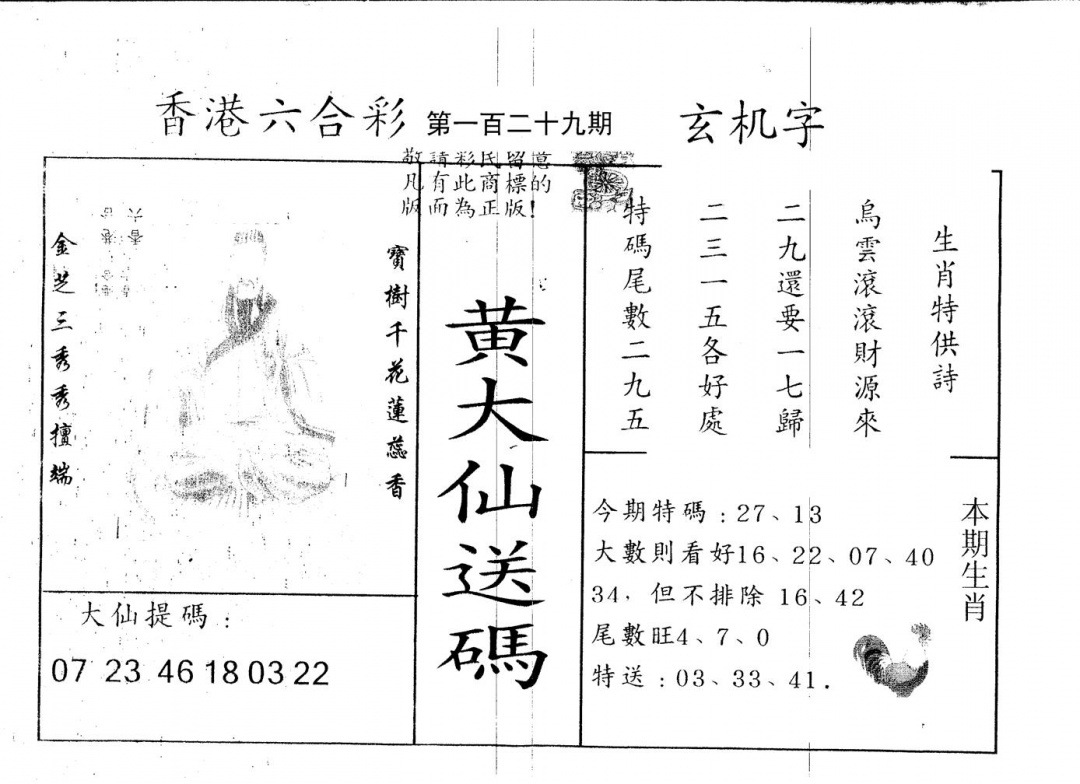 香港六合彩 第一百二十九期 玄机字
敬請彩民留意的
凡有此商標
版而為正版!
金芝三秀秀擅端
寶樹千花蓮蕊香
黄大仙送碼
生肖特供詩
烏雲滾滾財源來
二九還要一七歸
二三一五各好處
特碼尾數二九五
大仙提碼:
07 23 46 18 03 22
本期生肖
今期特碼:27、13
大數則看好16、22、07、40
34,但不排除 16、42
尾數旺4、7、0
特送:03、33、41.